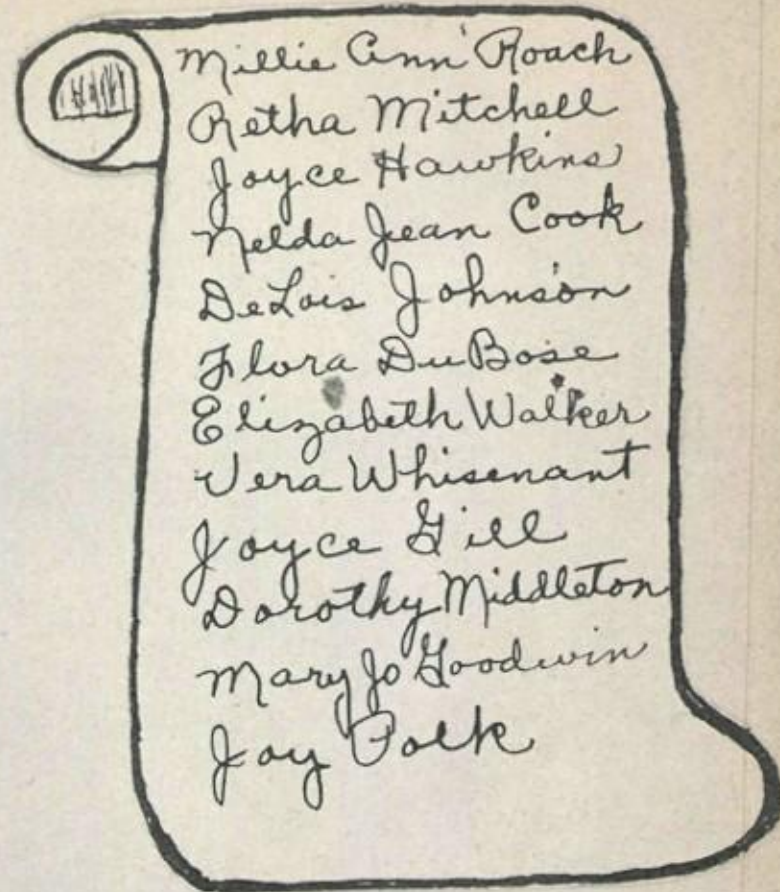 Millie Ann Roach
Retha Mitchell
Joyce Hawkins
Nelda Jean Cook
DeLois Johnson
Flora DuBose
Elizabeth Walker
Vera Whisenant
Joyce Gill
Dorothy Middleton
Mary Jo Goodwin
Joy Polk